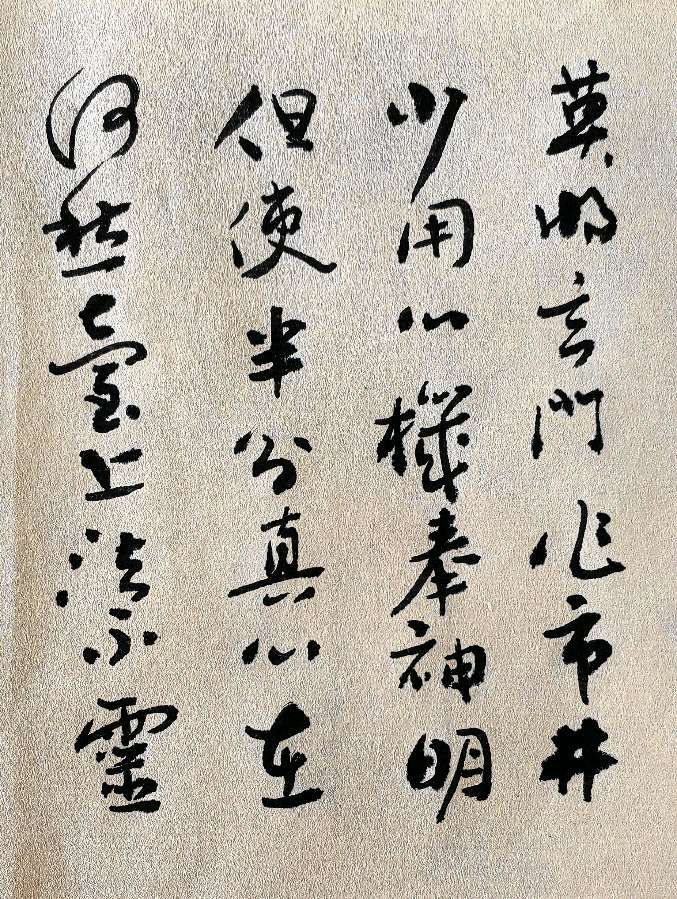 莫將玄門作市井
少用心機奉神明
但使半分真心在
何愁臺上法不靈